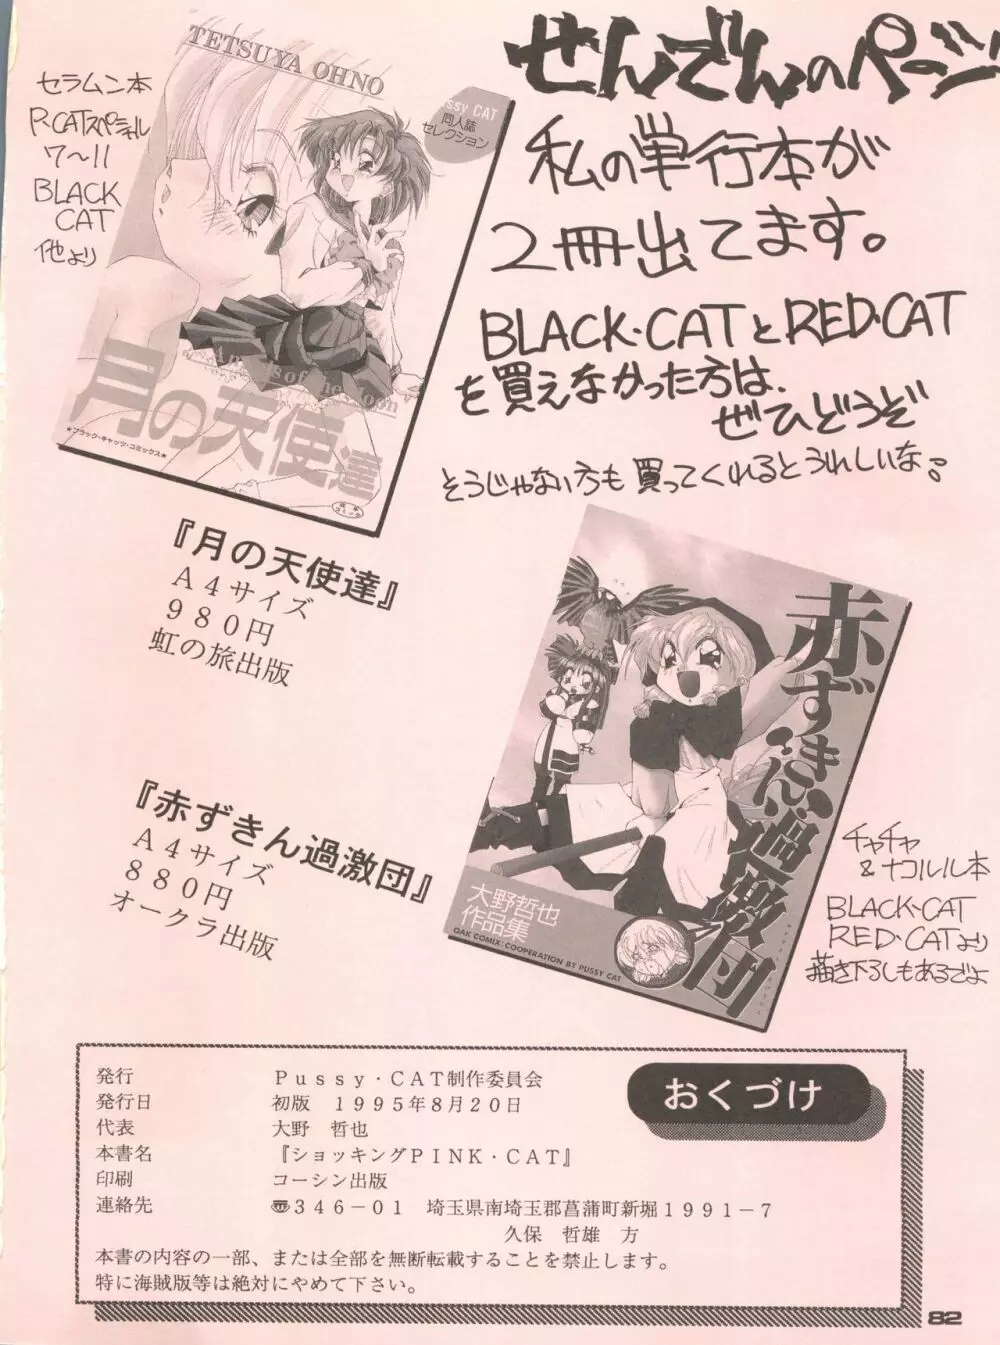 せんでんのページ
私の単行本が
2冊出てます。
BLACK・CATとRED・CAT
を買えなかった方は、
ぜひどうぞ
そうじゃない方も買ってくれるとうれしいな。
セラムン本
P.CATスペシャル
7〜11
BLACK
CAT
他より
TETSUYA OHNO
Pussy CAT
同人誌
セレクション
月の天使達
★ブラック・キャッツ・コミックス★
成年
コミック
『月の天使達』
A4サイズ
980円
虹の旅出版
赤ずきん過激団
大野哲也
作品集
OAK COMIX・COOPERATION BY PUSSY CAT
『赤ずきん過激団』
A4サイズ
880円
オークラ出版
チャチャ
&ナコルル本
BLACK・CAT
RED・CATより
描き下ろしもあるでよ
おくづけ
発行 Pussy・CAT制作委員会
発行日 初版 1995年8月20日
代表 大野 哲也
本書名 『ショッキングPINK・CAT』
印刷 コーシン出版
連絡先 〠346−01 埼玉県南埼玉郡菖蒲町新堀1991−7
久保 哲雄 方
本書の内容の一部、または全部を無断転載することを禁止します。
特に海賊版等は絶対にやめて下さい。
82